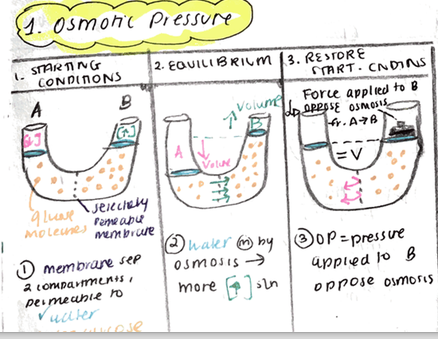 1. Osmotic Pressure
1. STARTING CONDITIONS
A
B
[↑]
glucose molecules
selectively permeable membrane
① membrane sep
2 compartments,
permeable to
✓ water
glucose
2. EQUILIBRIUM
↑ volume
B
A
↓
Volume
② water (m) by
osmosis →
more [↑] sln
3. RESTORE
START. CNDTNS
Force applied to B
OPPOSE OSMOSIS
fr. A→B
= V
③ OP = pressure
applied to B
oppose osmosis